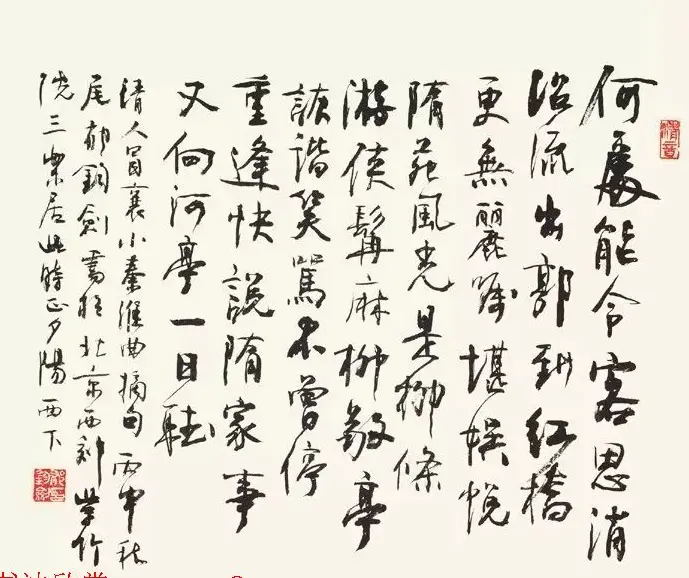 何處能令客思消
沿流出郭到紅橋
更無麗躅堪娛悅
隋苑風光是柳條
游俠髯麻柳敬亭
詼諧笑罵不曾停
重逢快說隋家事
又向河亭一日聽
清人冒襄小秦淮曲摘句 丙申秋
尾郁鈞劍書於北京西郊紫竹
院三樂居此時正夕陽西下